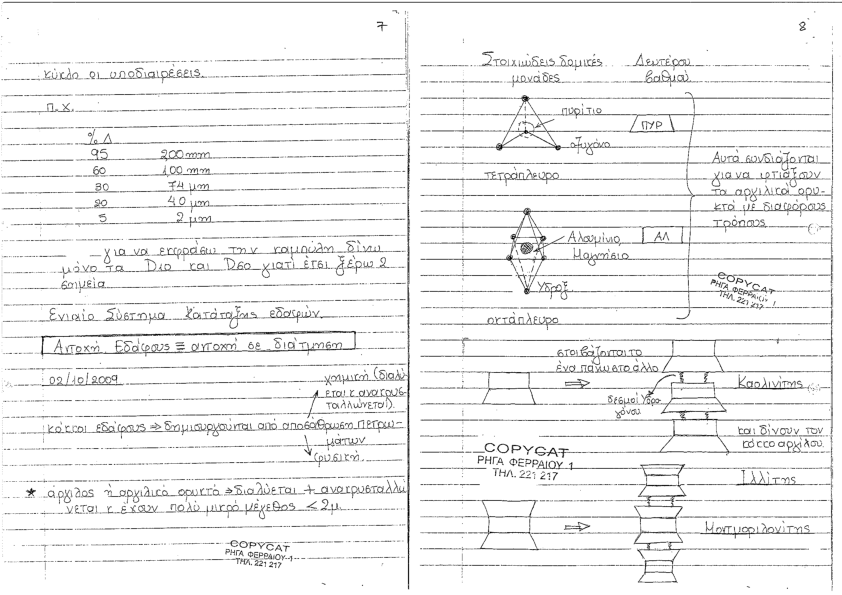 7
κύκλο οι υποδιαιρέσεις.
π.χ.
% Δ
95 200 mm
60 100 mm
30 74 μm
20 40 μm
5 2 μm
— για να εκφράσω την καμπύλη δίνω
μόνο τα D10 και D60 γιατί έτσι ξέρω 2
σημεία
Ενιαίο Σύστημα Κατάταξης εδαφών.
Αντοχή Εδάφους ≡ αντοχή σε διάτμηση
02/10/2009
χημική (διαλύ-
εται κ ανακρυσ-
ταλλώνεται).
κόκκοι εδάφους ⇒ δημιουργούνται από αποσάθρωση πετρω-
μάτων
φυσική.
* άργιλος ή αργιλικά ορυκτά ⇒ διαλύεται + ανακρυσταλλώ
νεται κ έχουν πολύ μικρό μέγεθος < 2μ.
COPYCAT
ΡΗΓΑ ΦΕΡΡΑΙΟΥ 1
ΤΗΛ. 221 217
8
Στοιχιώδεις δομικές
μονάδες
Δευτέρου
βαθμού
πυρίτιο
ΠΥΡ
οξυγόνο
τετράπλευρο
Αυτά συνδιάζονται
για να φτιάξουν
τα αργιλικά ορυ-
κτά με διαφόρους
τρόπους
Αλουμίνιο,
Μαγνήσιο
ΑΛ
Υδροξ.
COPYCAT
ΡΗΓΑ ΦΕΡΡΑΙΟΥ 1
ΤΗΛ. 221 217
οκτάπλευρο
στοιβάζονται το
ένα πάνω στο άλλο
Καολινίτης
δεσμοί Υδρο-
γόνου
και δίνουν τον
κόκκο αργίλου.
COPYCAT
ΡΗΓΑ ΦΕΡΡΑΙΟΥ 1
ΤΗΛ. 221 217
Ιλλίτης
Μοντμοριλονίτης